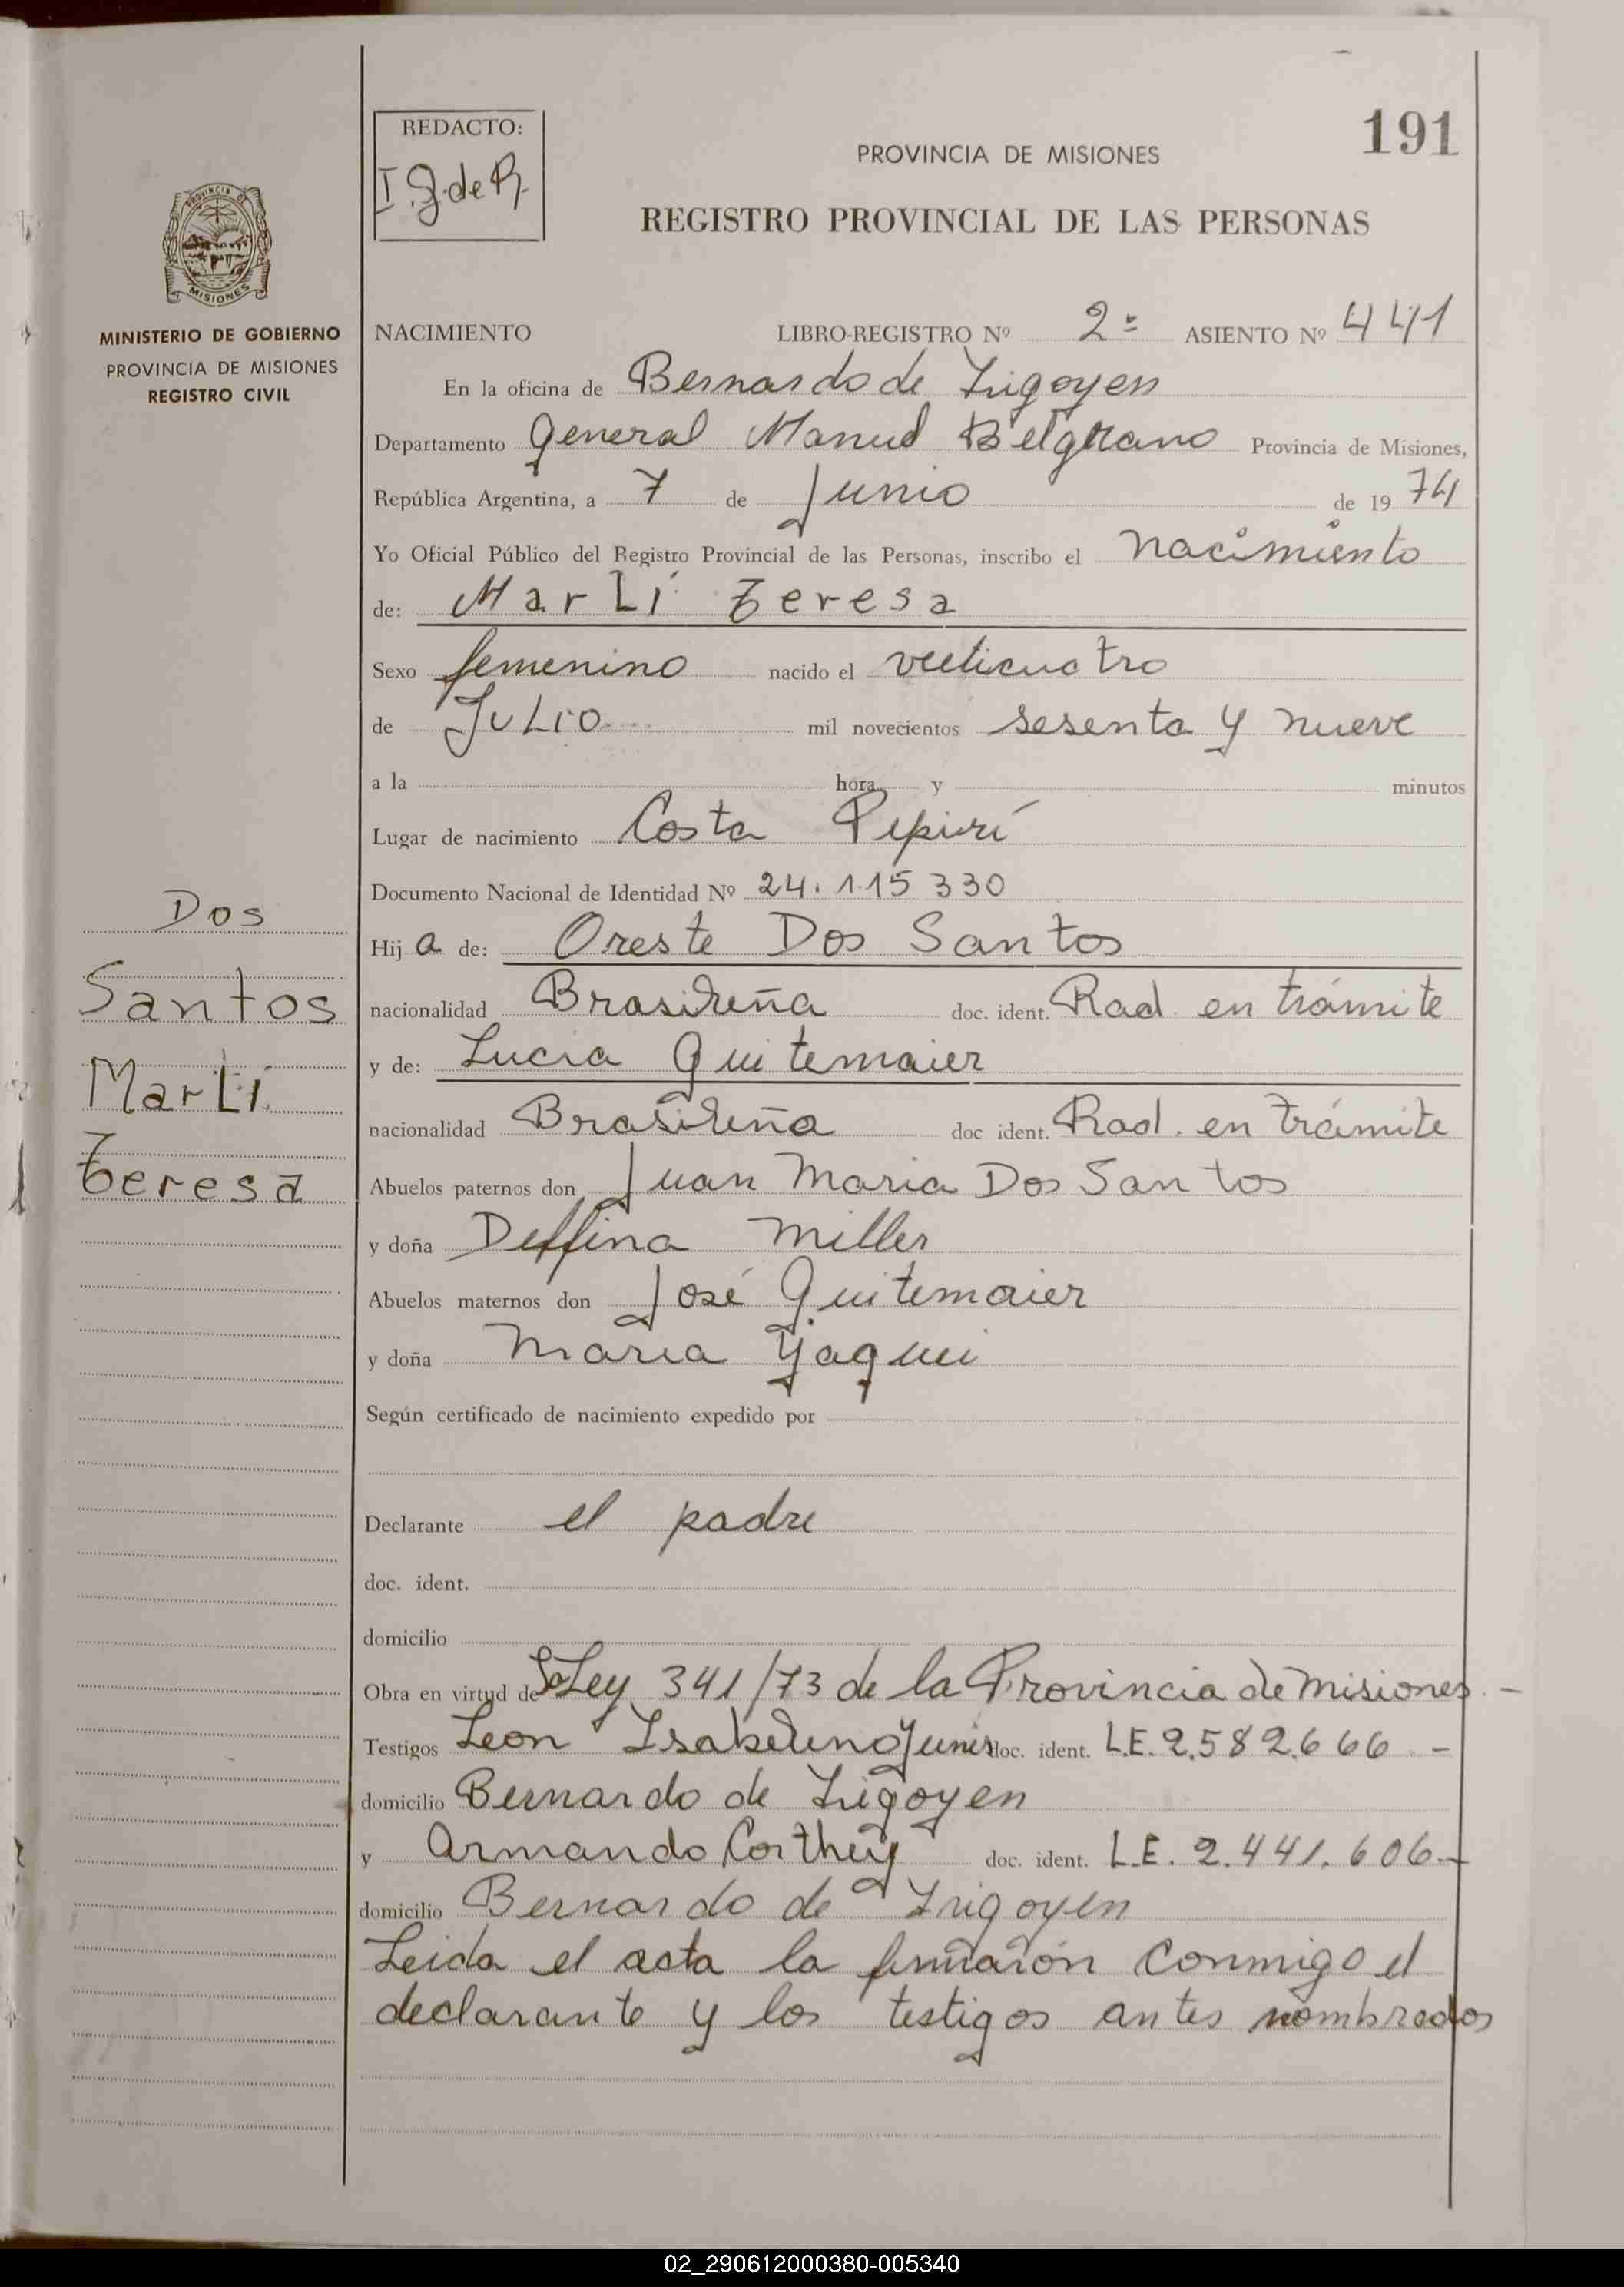 191
REDACTO:
I.G. de R.
PROVINCIA DE MISIONES
REGISTRO PROVINCIAL DE LAS PERSONAS
PROVINCIA DE
MISIONES
MINISTERIO DE GOBIERNO
PROVINCIA DE MISIONES
REGISTRO CIVIL
NACIMIENTO LIBRO-REGISTRO Nº 2º ASIENTO Nº 441
En la oficina de Bernardo de Irigoyen
Departamento General Manuel Belgrano Provincia de Misiones,
República Argentina, a 7 de Junio de 1974
Yo Oficial Público del Registro Provincial de las Personas, inscribo el nacimiento
de: Marli Teresa
Sexo femenino nacido el veeticuatro
de Julio mil novecientos sesenta y nueve
a la hora y minutos
Lugar de nacimiento Costa Pepirí
Documento Nacional de Identidad Nº 24.115330
Dos
Santos
Marli
Teresa
Hija de: Oreste Dos Santos
nacionalidad Brasileña doc. ident. Rad. en trámite
y de: Lucia Quitemaier
nacionalidad Brasileña doc ident. Rad. en trámite
Abuelos paternos don Juan Maria Dos Santos
y doña Delfina Miller
Abuelos maternos don José Quitemaier
y doña Maria Yaqui
Según certificado de nacimiento expedido por
Declarante el padre
doc. ident.
domicilio
Obra en virtud de Ley 341/73 de la Provincia de Misiones.-
Testigos Leon Isabelino doc. ident. L.E. 2.582.666.-
domicilio Bernardo de Irigoyen
y Armando Corthey doc. ident. L.E. 2.441.606.-
domicilio Bernardo de Irigoyen
Leida el acta la firmaron conmigo el
declarante y los testigos antes nombrados
02_290612000380-005340